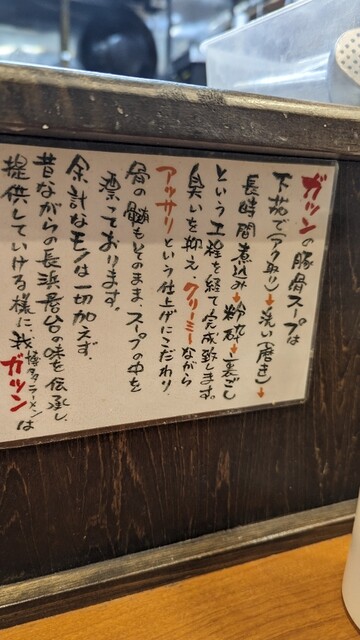 ガツンの豚骨スープは
下茹でアク取り→洗い(磨き)→
長時間煮込み→粉砕→裏ごし
という工程を経て完成致します。
臭いを抑え、クリーミーながら
アッサリという仕上げにこだわり
骨の髄もそのまま、スープの中を
漂っております。
余計なモノは一切加えず、
昔ながらの長浜屋台の味を伝承し、
提供していける様に、我
ラーメンは
ガツン